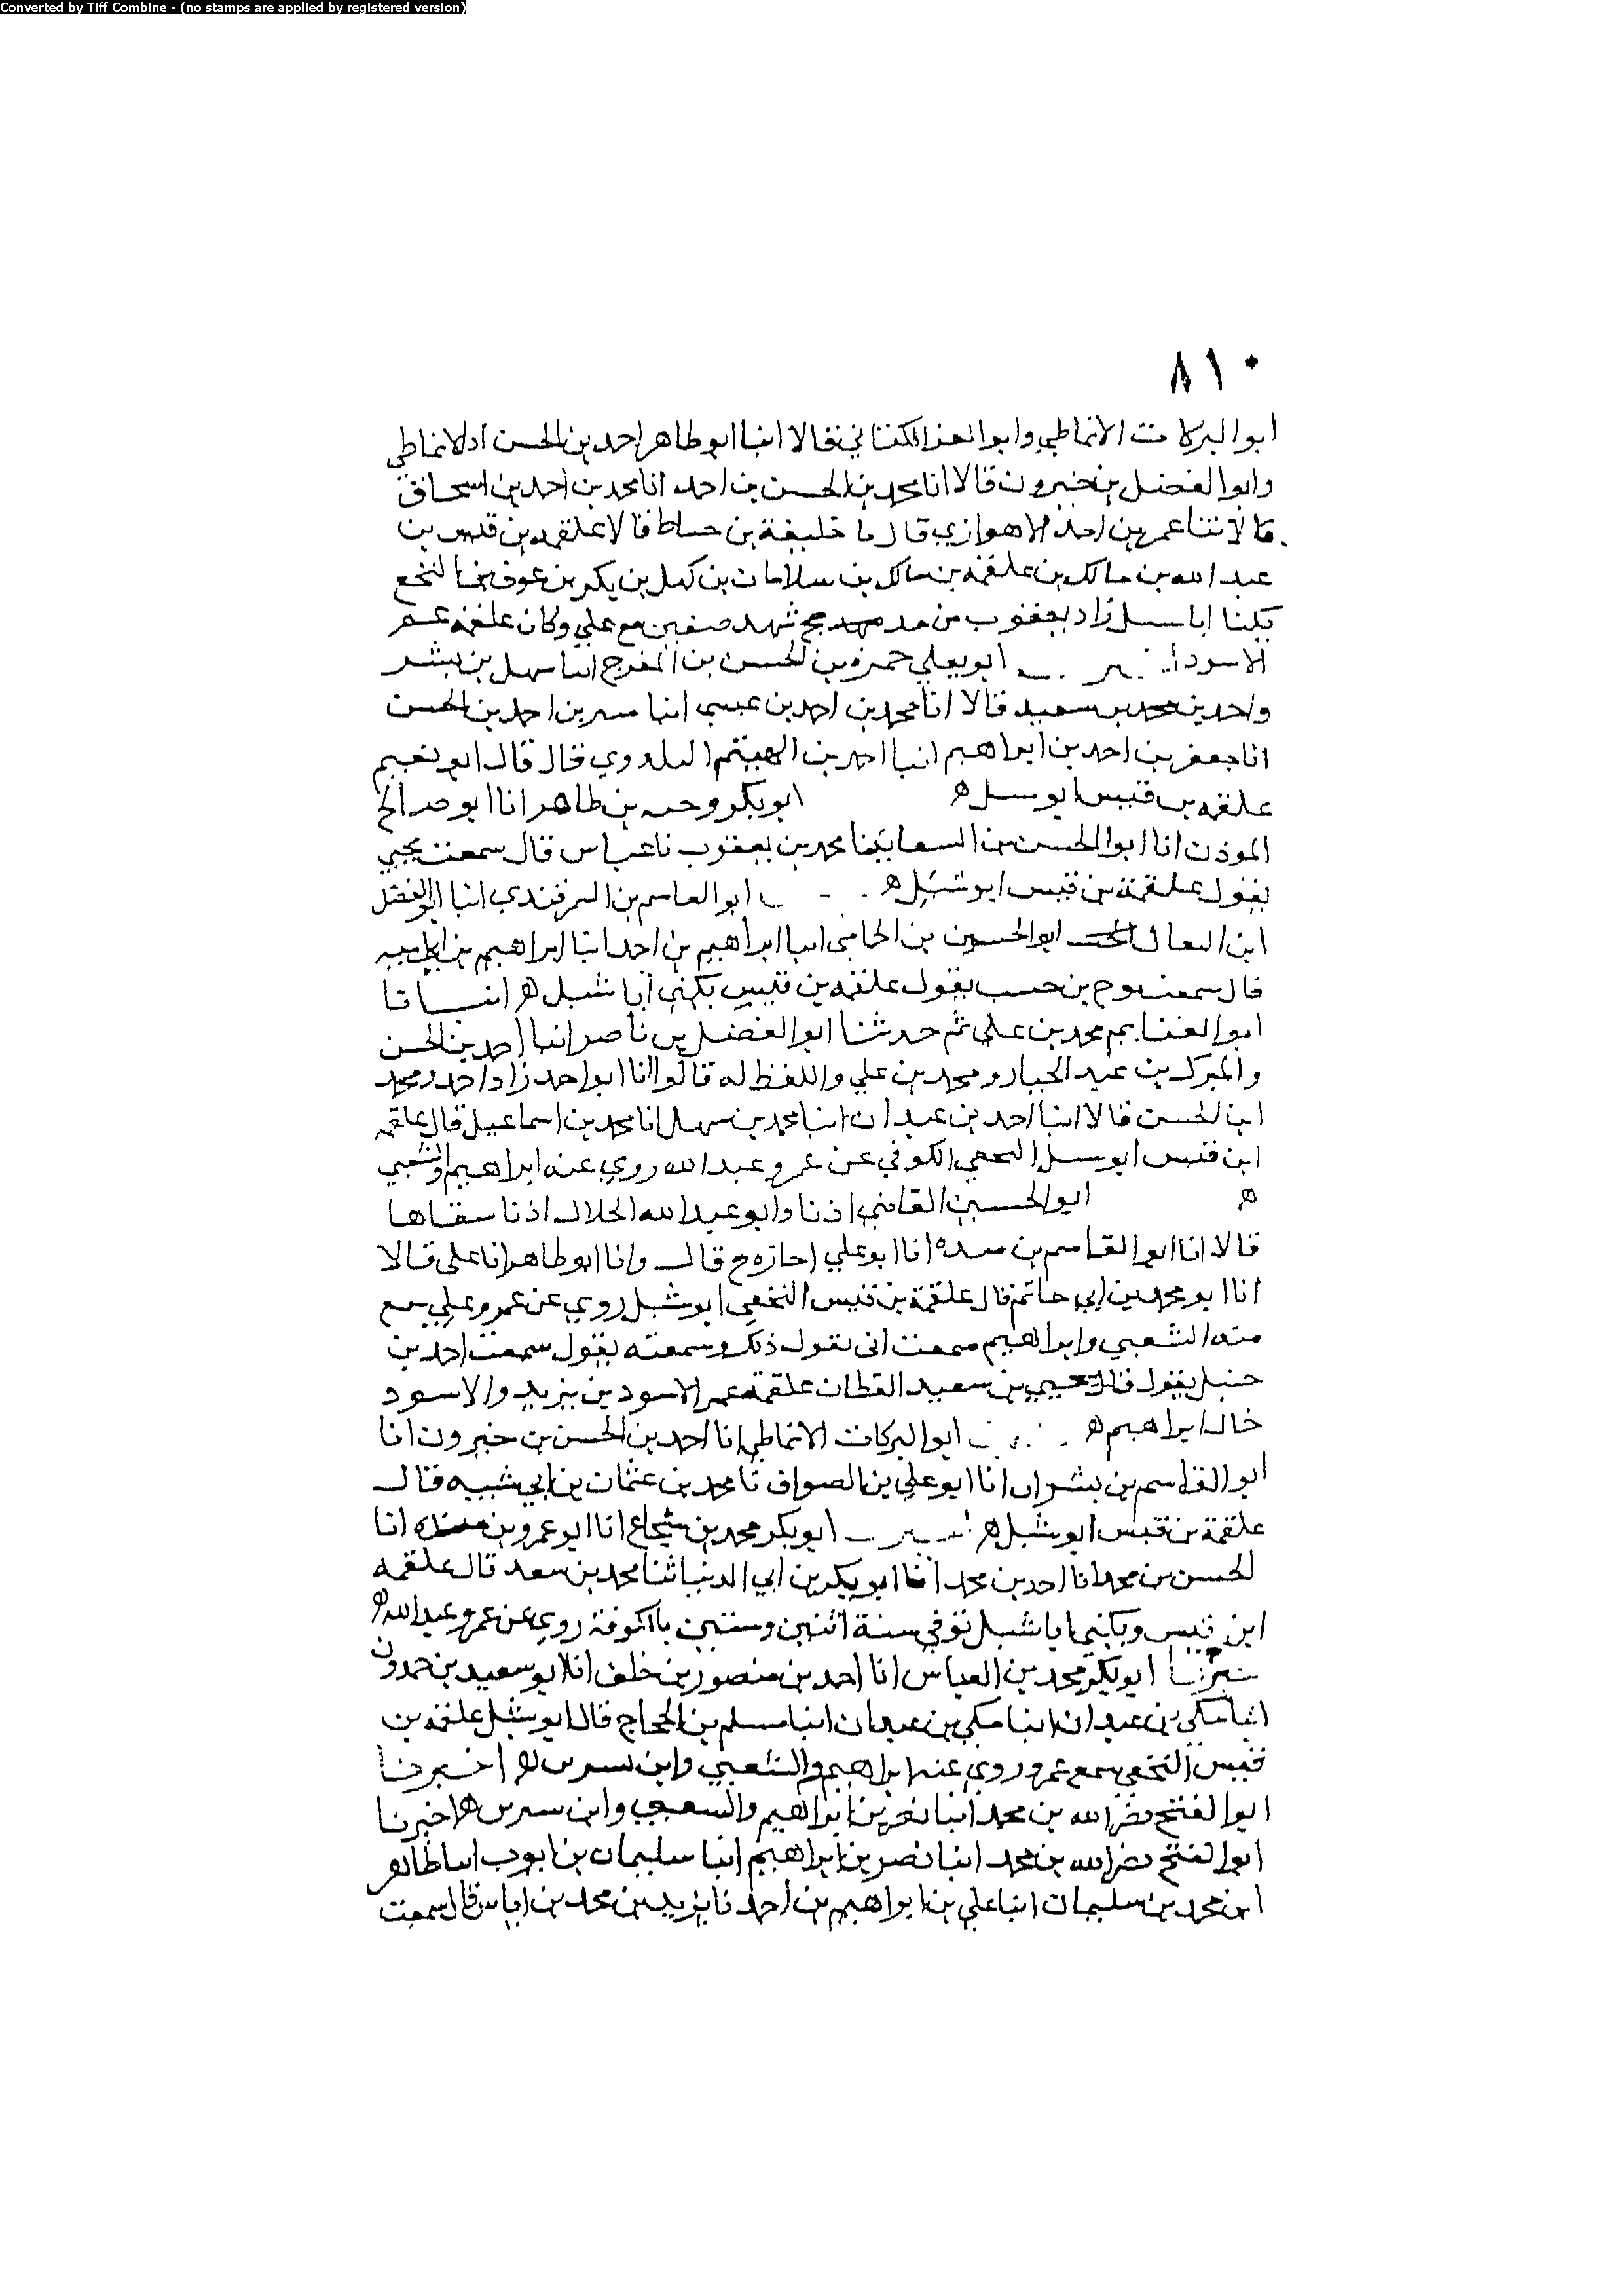 Converted by Tiff Combine - (no stamps are applied by registered version)
٨١٠
ابوا البركات الانماطي وابوا لعز الكتاني فقالا انبا ابو طاهر احمد بن الحسن اد لانماطي
وابوا لفضل بن خيرون قالا انا محمد بن الحسن بن احمد انا محمد بن احمد بن اسحاق
قالا نتنا عمر بن احمد الاهوازي قال ما خليفة بن حساط قالا علقمه بن قيس بن
عبد الله بن مالك بن علقمه بن مالك بن سلامان بن كهل بن بكر بن عوف بن النخع
يكنا ابا سبل زاد يعقوب من مد مهد حج شهد صفين مع علي وكان علقمه عم
الاسود ابو يعلي حمزه بن الحسن بن المفرج انبا سهل بن بشر
واحمد بن محمد بن سعيد قالا انا محمد بن احمد بن عيسي انبا منير بن احمد بن الحسن
انا جعفر بن احمد بن ابراهيم انبا احمد بن الهيثم البلدوي قال قال ابو نعيم
علقمه بن قيس ابو سبل ه ابو بكر وحبه بن طاهر انا ابو صالح
الموذن انا ابوا الحسن بن السقا بنا محمد بن يعقوب نا عباس قال سمعت يحيي
يقول علقمة بن قيس ابو شبل ه ابو القاسم بن السمرقندي انبا ابو الفضل
ابن البقال ابو الحسين بن الحمامى انبا ابراهيم بن احمد انبا ابراهيم بن ابي
قال سمعت نوح بن حبيب يقول علقمه بن قيس يكني ابا شبل ه انبانا
ابوا لغنايم محمد بن علي ثم حدثنا ابوا لفضل بن ناصر انبا احمد بن الحسن
والمبرك بن عبد الجبار ومحمد بن علي واللفظ له قالوا انا ابو احمد زاد احمد ومحمد
ابن الحسن قالا انبا احمد بن عبدان انبا محمد بن سهل انا محمد بن اسماعيل قال علقمه
ابن قيس ابو سبل النخعي الكوفي عن عمر وعبد الله روي عنه ابراهيم والشعبي
ه ابو الحسين القاضي اذنا وابو عبد الله الخلال اذنا سفاها
قالا انا ابوا لقاسم بن منده انا ابو علي اجازه ح قال وانا ابو طاهر انا علي قالا
انا ابو محمد بن ابي حاتم قال علقمة بن قيس النخعي ابو شبل روي عن عمر وعلي سمع
منه الشعبي وابراهيم سمعت ابى يقول ذلك وسمعته يقول سمعت احمد بن
حنبل يقول قال يحيي بن سعيد القطان علقمة عم الاسود بن يزيد والاسود
خال ابراهيم ه ابوا لبركات الانماطي انا احمد بن الحسن بن خيرون انا
ابو القاسم بن بشران انا ابو علي بن الصواف نا محمد بن عثمان بن ابي شيبه قال
علقمة بن قيس ابو شبل ه ابو بكر محمد بن شجاع انا ابو عمرو بن منده انا
الحسن بن محمد انا احمد بن محمد انا ابو بكر بن ابي الدنيا ثنا محمد بن سعد قال علقمه
ابن قيس ويكني ابا شبل توفي سنة اثنين وستين بالكوفة روي عن عمر وعبد الله ه
ابو بكر محمد بن العباس انا احمد بن منصور بن خلف انا ابو سعيد بن حمدون
انبا مكي بن عبدان انبا مكي بن عبدان انبا مسلم بن الحجاج قال ابو شبل علقمه بن
قيس النخعي سمع عمر وروي عنه ابراهيم والشعبي وابن سيرين ه اخبرنا
ابوا لفتح نصر الله بن محمد انبا نصر بن ابراهيم والسعبي وابن سيرين ه اخبرنا
ابوا لفتح نصر الله بن محمد انبا نصر بن ابراهيم انبا سليمان بن ايوب انبا طاهر
ابن محمد بن سليمان انبا علي بن ابراهيم بن احمد نا يزيد بن محمد بن اياس قال سمعت